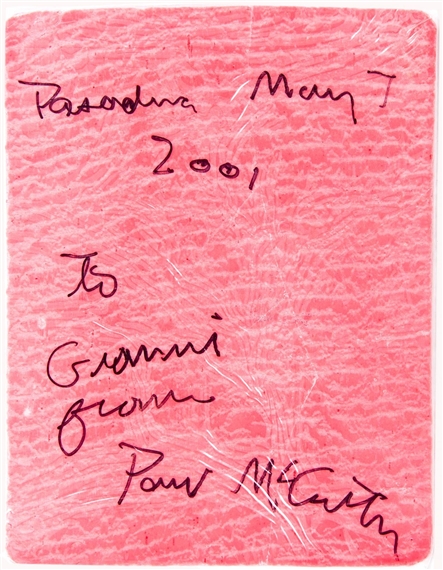 Pasadena May 7
2001
To
Gianni
from
Paul McCarthy